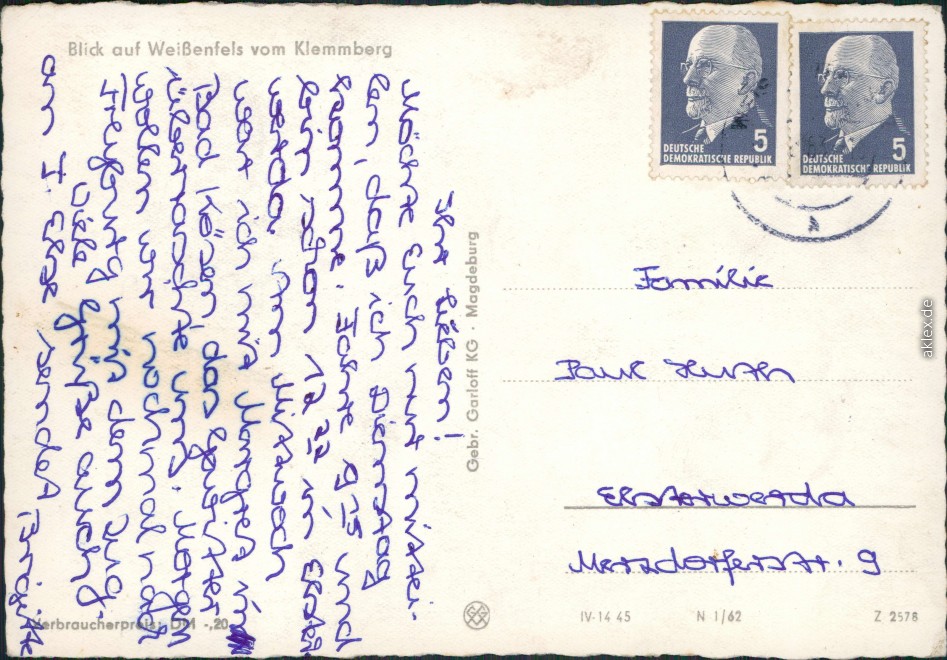 Blick auf Weißenfels vom Klemmberg
Ihr Lieben!
Möchte Euch nur mittei-
len, daß ich Dienstag
komme. Fahre 9 25 und
bin schon 12 22 in Elster
werda. Am Mittwoch
war ich mit Margret in
Bad Kösen, das Gewitter
überraschte uns. Morgen
wollen wir noch mal nach
Freyburg mit dem Zug.
Viele Grüße auch
an T. Else sendet Brigitte
Verbraucherpreis: DM -,20
Gebr. Garloff KG · Magdeburg
5
DEUTSCHE
DEMOKRATISCHE REPUBLIK
5
DEUTSCHE
DEMOKRATISCHE REPUBLIK
Familie
Paul Huth
Elsterwerda
Merzdorferstr. 9
IV-14 45 N 1/62 Z 2578
aklex.de